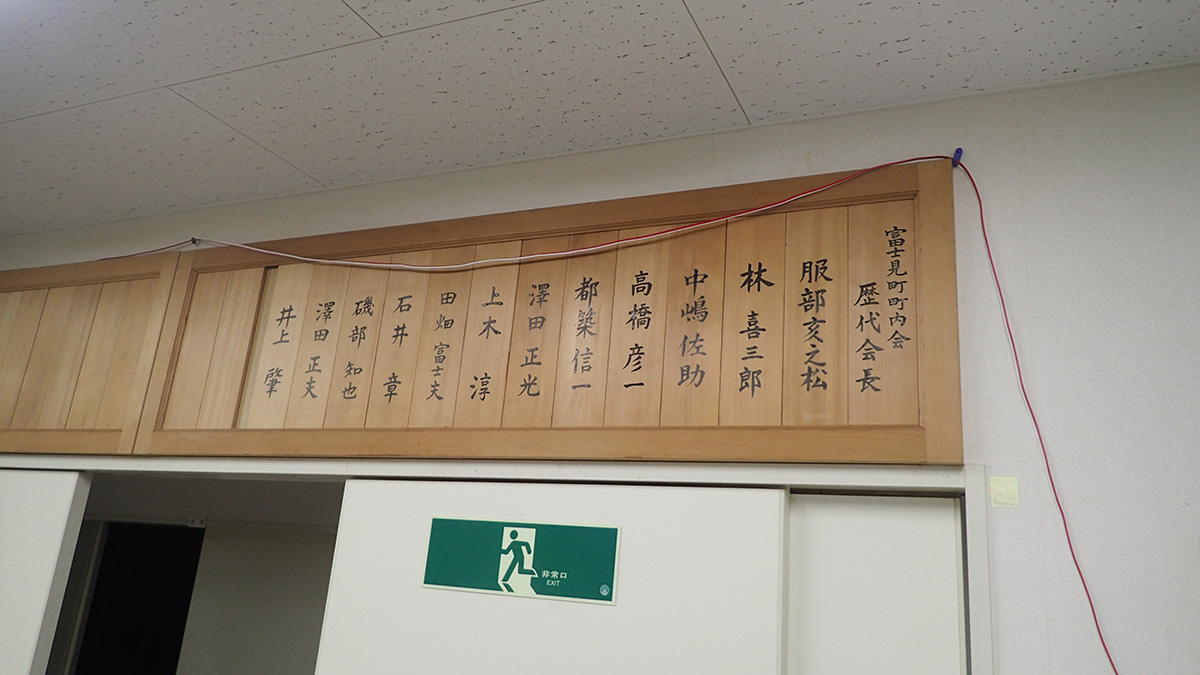 富士見町町内会
歴代会長
服部亥之松
林喜三郎
中嶋佐助
高橋彦一
都築信一
澤田正光
上木淳
田畑富士夫
石井章
磯部知也
澤田正夫
井上肇
非常口
EXIT